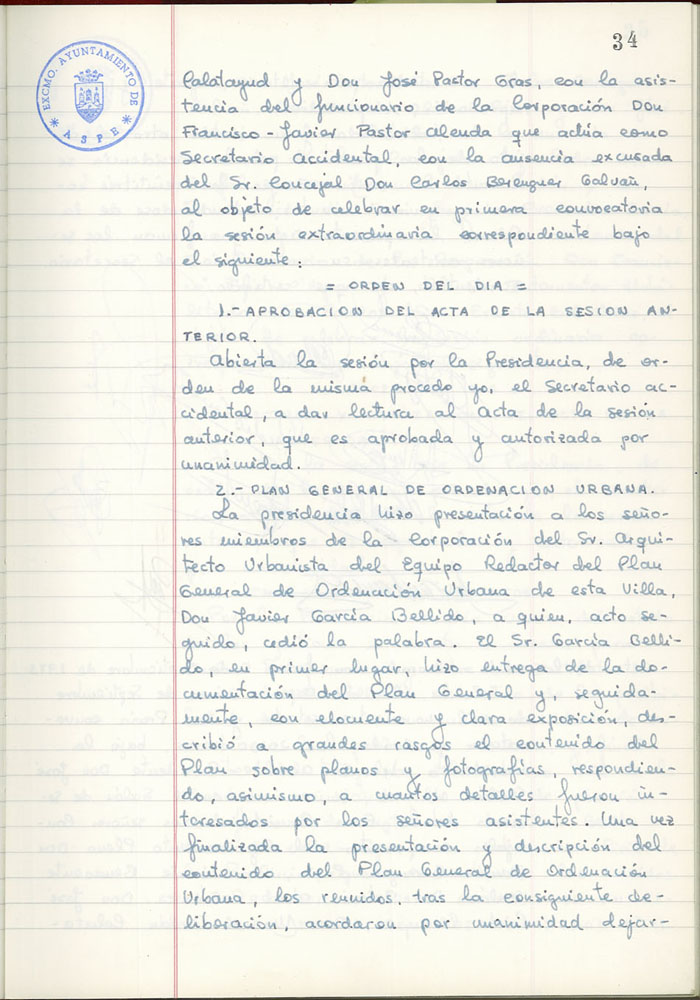 34
EXCMO. AYUNTAMIENTO DE
* ASPE *
Calatayud y Don José Pastor Gras, con la asis-
tencia del funcionario de la Corporación Don
Francisco-Javier Pastor Alenda que actúa como
Secretario Accidental, con la ausencia excusada
del Sr. Concejal Don Carlos Berenguer Galvañ,
al objeto de celebrar en primera convocatoria
la sesión extraordinaria correspondiente bajo
el siguiente:
= ORDEN DEL DIA =
1.- APROBACION DEL ACTA DE LA SESION AN-
TERIOR.
Abierta la sesión por la Presidencia, de or-
den de la misma procedo yo, el Secretario ac-
cidental, a dar lectura al acta de la sesión
anterior, que es aprobada y autorizada por
unanimidad.
2.- PLAN GENERAL DE ORDENACION URBANA.
La presidencia hizo presentación a los seño-
res miembros de la Corporación del Sr. Arqui-
tecto Urbanista del Equipo Redactor del Plan
General de Ordenación Urbana de esta Villa,
Don Javier García Bellido, a quien, acto se-
guido, cedió la palabra. El Sr. García Belli-
do, en primer lugar, hizo entrega de la do-
cumentación del Plan General y, seguida-
mente, con elocuente y clara exposición, des-
cribió a grandes rasgos el contenido del
Plan sobre planos y fotografías, respondien-
do, asimismo, a cuantos detalles fueron in-
teresados por los señores asistentes. Una vez
finalizada la presentación y descripción del
contenido del Plan General de Ordenación
Urbana, los reunidos, tras la consiguiente de-
liberación, acordaron por unanimidad dejar-